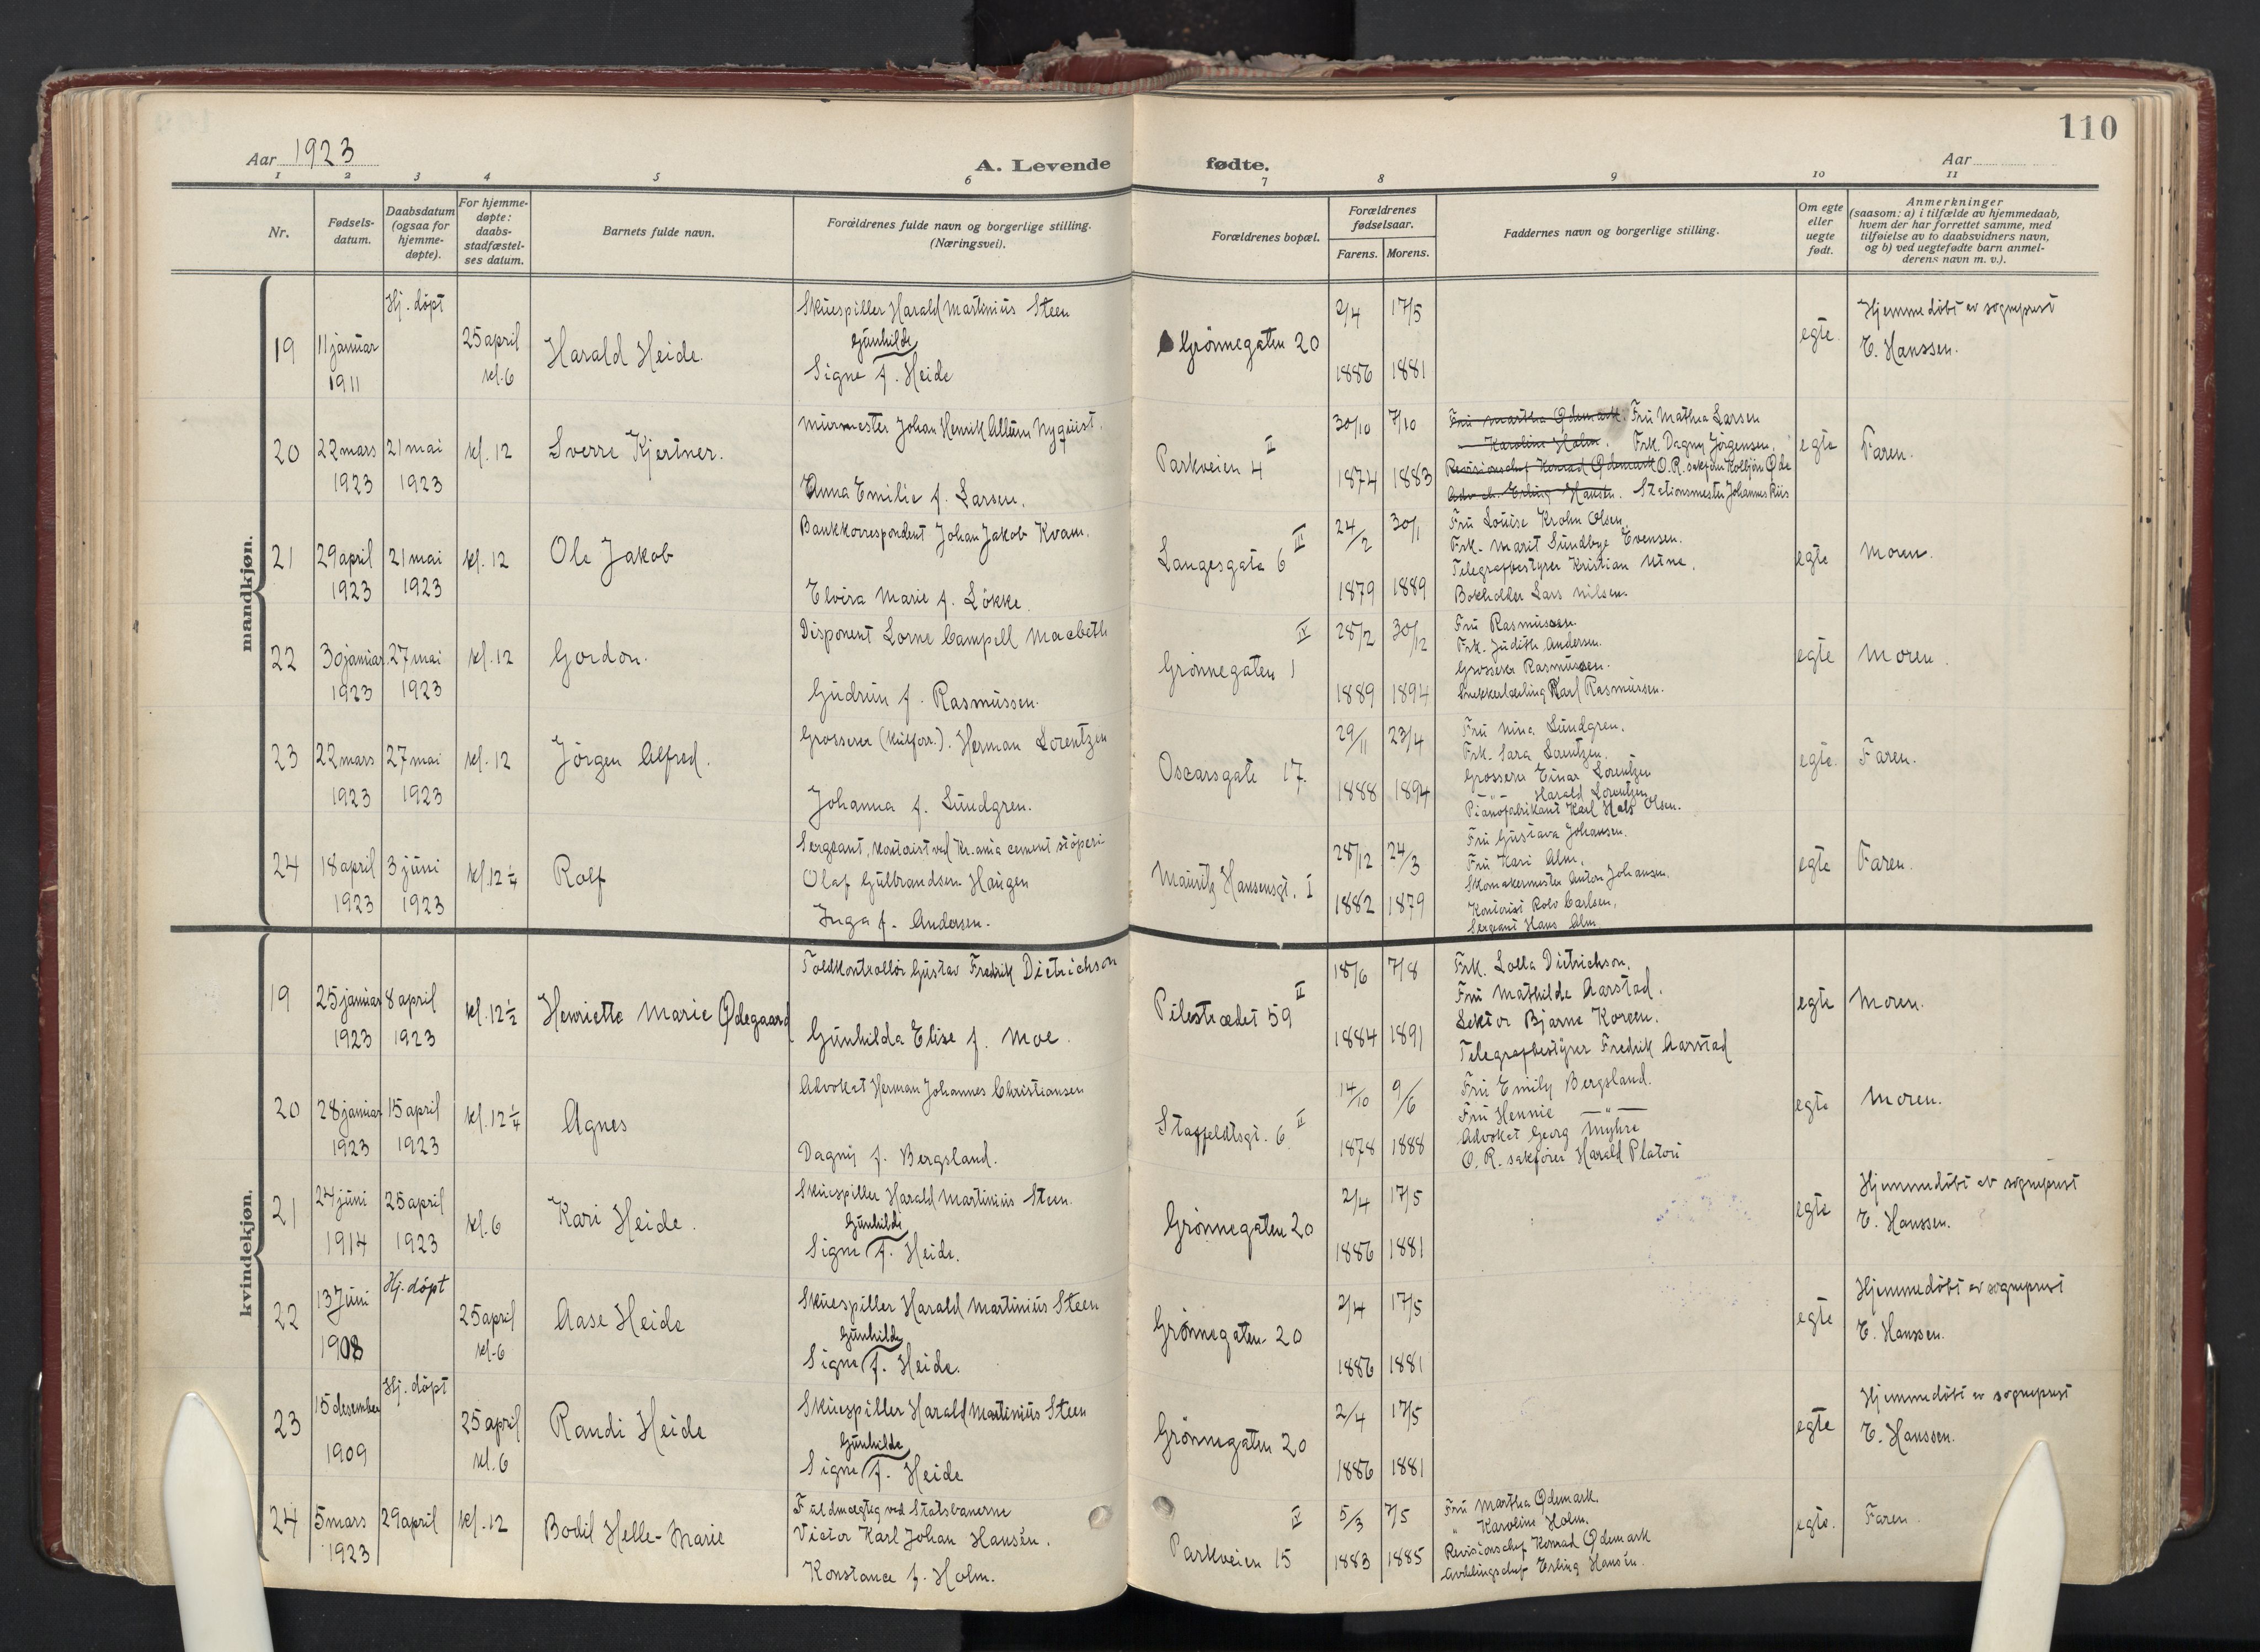 110
Aar 1923
A. Levende fødte.
Aar
1 2 3 4 5 6 7 8 9 10 11
Nr.
Fødsels-
datum.
Daabsdatum
(ogsaa for
hjemme-
døpte).
For hjemme-
døpte:
daabs-
stadfæstel-
ses datum.
Barnets fulde navn.
Forældrenes fulde navn og borgerlige stilling.
(Næringsvei).
Forældrenes bopæl.
Forældrenes
fødselsaar.
Farens. Morens.
Faddernes navn og borgerlige stilling.
Om egte
eller
uegte
født.
Anmerkninger
(saasom: a) i tilfælde av hjemmedaab,
hvem der har forrettet samme, med
tilføielse av to daabsvidners navn,
og b) ved uegtefødte barn anmel-
derens navn m. v.).
mandkjøn.
19
11 januar
1911
Hj. døpt
25 april
kl. 6
Harald Heide.
Skuespiller Harald Martinius Steen
Gunhilde
Signe f. Heide
Grønnegaten 20
2/4 17/5
1886 1881
egte.
Hjemmedøbt av sogneprest
E. Hanssen.
20
22 mars
1923
21 mai
1923
kl. 12
Sverre Kjertner.
Murmester Johan Henrik Allum Nyquist.
Anna Emilie f. Larsen.
Parkveien 4 II
30/10 7/10
1874 1883
Fru Martha Ødemark. Fru Mathea Larsen
— Karoline Holm. Frk. Dagny Jørgensen.
Revisionschef Konrad Ødemark O.R. sakfører Kolbjørn Øde
Avd. ch. Erling Hansen. Stationsmester Johannes Riis
egte
Faren.
21
29 april
1923
21 mai
1923
kl. 12
Ole Jakob
Bankkorrespondent Johan Jakob Kvam.
Elvira Marie f. Løkke.
Langesgate 6 III
24/2 30/1
1879 1889
Fru Louise Krohn Olsen.
Frk. Marit Sundbye Evensen.
Telegrafbestyrer Kristian
Bokholder Lars Nilsen.
egte
Moren.
22
30 januar
1923
27 mai
1923
kl. 12
Gordon.
Disponent Lorne Campell Macbeth
Gudrun f. Rasmussen.
Grønnegaten 1 IV
28/2 30/12
1889 1894
Fru Rasmussen.
Frk. Judith Andersen.
Grosserer Rasmussen.
Snekkerlærling Karl Rasmussen.
egte
Moren.
23
22 mars
1923
27 mai
1923
kl. 12
Jørgen Alfred.
Grosserer (Kulforr.). Herman Lorentzen
Johanna f. Lundgren.
Oscarsgate 17.
29/11 23/4
1888 1894
Fru Nina Lundgren.
Frk. Sara Lorentzen.
Grosserer Einar Lorentzen
— " — Harald Lorentzen
Pianofabrikant Karl Hals Olsen.
egte.
Faren.
24
18 april
1923
3 juni
1923
kl. 12 1/4
Rolf
Sergeant, kontorist ved Kr.ania cement støperi
Olaf Gulbrandsen Haugen
Inga f. Andersen.
Mauritz Hansensgt. 1
28/12 24/3
1882 1879
Fru Gustava Johansen.
Fru Kari Alm.
Skomakermester Anton Johansen.
Kontorist Rolv Carlsen.
Sergeant Hans Alm
egte
Faren.
kvindekjøn.
19
25 januar
1923
8 april
1923
kl. 12 1/2
Henriette Marie Ødegaard
Toldkontrollør Gustav Fredrik Dietrichson
Gunhilda Elise f. Moe.
Pilestrædet 59 II
18/6 7/8
1884 1891
Frk. Lolla Dietrichson.
Fru Mathilde Aarstad.
Lektor Bjarne Koreen.
Telegrafbestyrer Fredrik Aarstad
egte
Moren.
20
28 januar
1923
15 april
1923
kl. 12 1/4
Agnes
Advokat Herman Johannes Christiansen
Dagny f. Bergsland.
Staffeldtsgt. 6 II
14/10 9/6
1878 1888
Fru Emily Bergsland.
Fru Hennie — " —
Advokat Georg Myhre
O. R. sakfører Harald Platou
egte
Moren.
21
24 juni
1914
25 april
1923
kl. 6
Kari Heide.
Skuespiller Harald Martinius Steen.
Gunhilde
Signe f. Heide.
Grønnegaten 20
2/4 17/5
1886 1881
egte
Hjemmedøbt av sogneprest
E. Hanssen.
22
13 Juni
1908
Hj. døpt
25 april
kl. 6
Aase Heide
Skuespiller Harald Martinius Steen
Gunhilde
Signe f. Heide.
Grønnegaten 20
2/4 17/5
1886 1881
egte
Hjemmedøbt av sogneprest
E. Hanssen.
23
15 desember
1909
Hj. døpt
25 april
kl. 6
Randi Heide
Skuespiller Harald Martinius Steen
Gunhilde
Signe f. Heide
Grønnegaten 20
2/4 17/5
1886 1881
egte
Hjemmedøbt av sogneprest
E. Hanssen.
24
5 mars
1923
29 april
kl. 12
Bodil Helle-Marie
Fuldmægtig ved Statsbanerne
Victor Karl Johan Hansen.
Konstance f. Holm.
Parkveien 15 IV
5/3 7/5
1883 1885
Fru Martha Ødemark.
" Karoline Holm.
Revisionschef Konrad Ødemark
Avdelingschef Erling Hansen.
egte.
Faren.